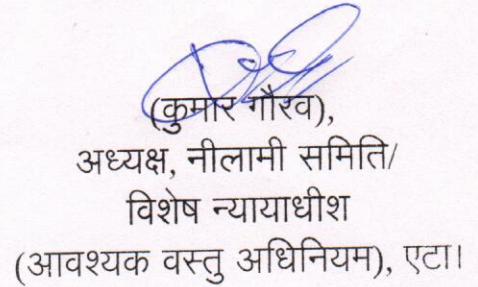 (कुमार गौरव),
अध्यक्ष, नीलामी समिति/
विशेष न्यायाधीश
(आवश्यक वस्तु अधिनियम), एटा।